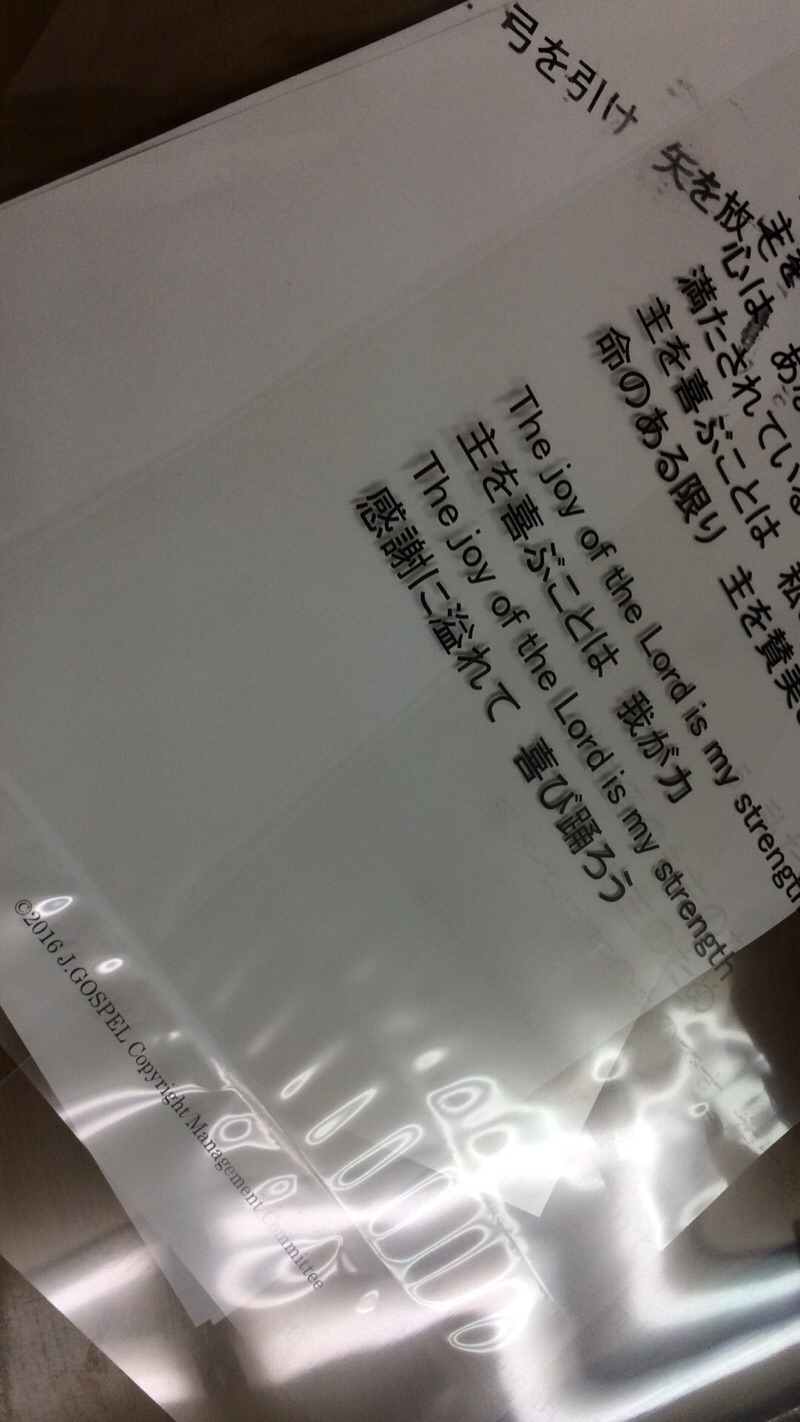 弓を引け 矢を放
主を
心は あな
満たされている
主を喜ぶことは 私
命のある限り 主を賛美
The joy of the Lord is my strength
主を喜ぶことは 我が力
The joy of the Lord is my strength
感謝に溢れて 喜び踊ろう
©2016 J.GOSPEL Copyright Management Committee